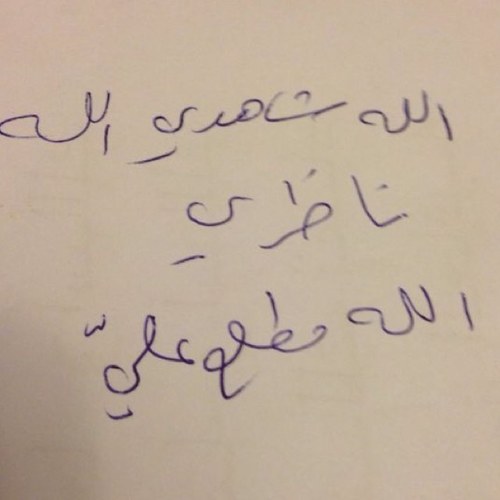 الله شاهدي الله
ناظري
الله مطلع عليّ